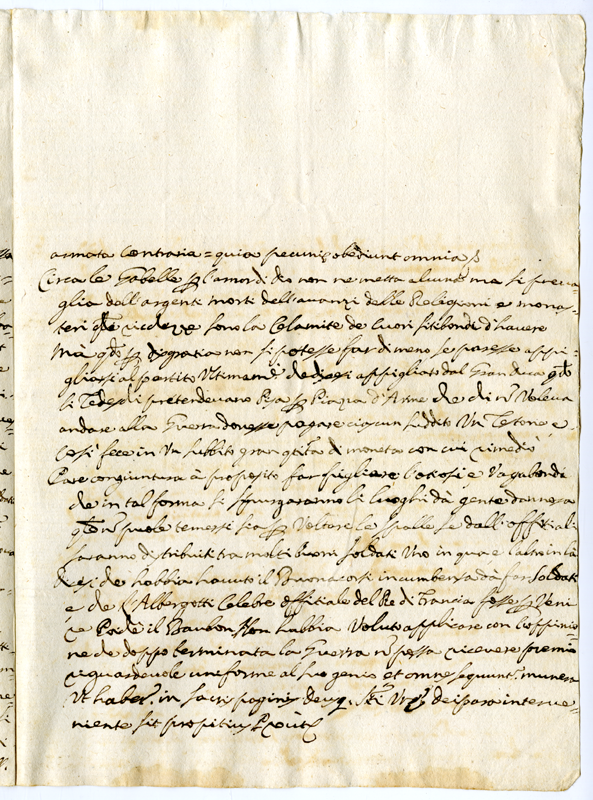 armata contraria = quia pecunie obediunt omnia
Circa le Gabelle l'amor di dio non ne metta alcuna ma si preva=
glia dell'argenti morti dell'avanzi delle Religioni e monas=
teri ricchezze sono la Calamite de cuori sitibondi d'havere
Mà disgratia non si potesse far di meno, se paresse appi=
gliarsi al partito Ultimamente appigliato dal Gran Duca
si Tedeschi pretendevano Pisa Piazza d'Arme che chi Voleva
andare alla Guerra dovesse pagare ciascun suddito Un Testone, e
Così fece in Un subbito gran di moneta con cui rimediò
Pare congiuntura à proposito far pigliare l'otiosi e Vagabondi
che in tal forma si spurgaranno li luoghi dà gente dannosa
puole temersi sia Voltare le spalle se dall'offitiali
saranno distribuiti tra molti buoni soldati Uno in qua e l'altro in là
che habbia havuto il Buonacorsi incumbenza dà far soldati
e che l'Albergotti Celebre offitiale del Re di Francia fosse Veni
re che il Baubon Non habbia Voluto applicare con l'oppinio=
ne che doppo terminata la Guerra possa ricevere premio
riguardevole uniforme al suo genio et omnes sequuntur munera
Ut habetur in sacris paginis deiparà interve=
niente sit propitius